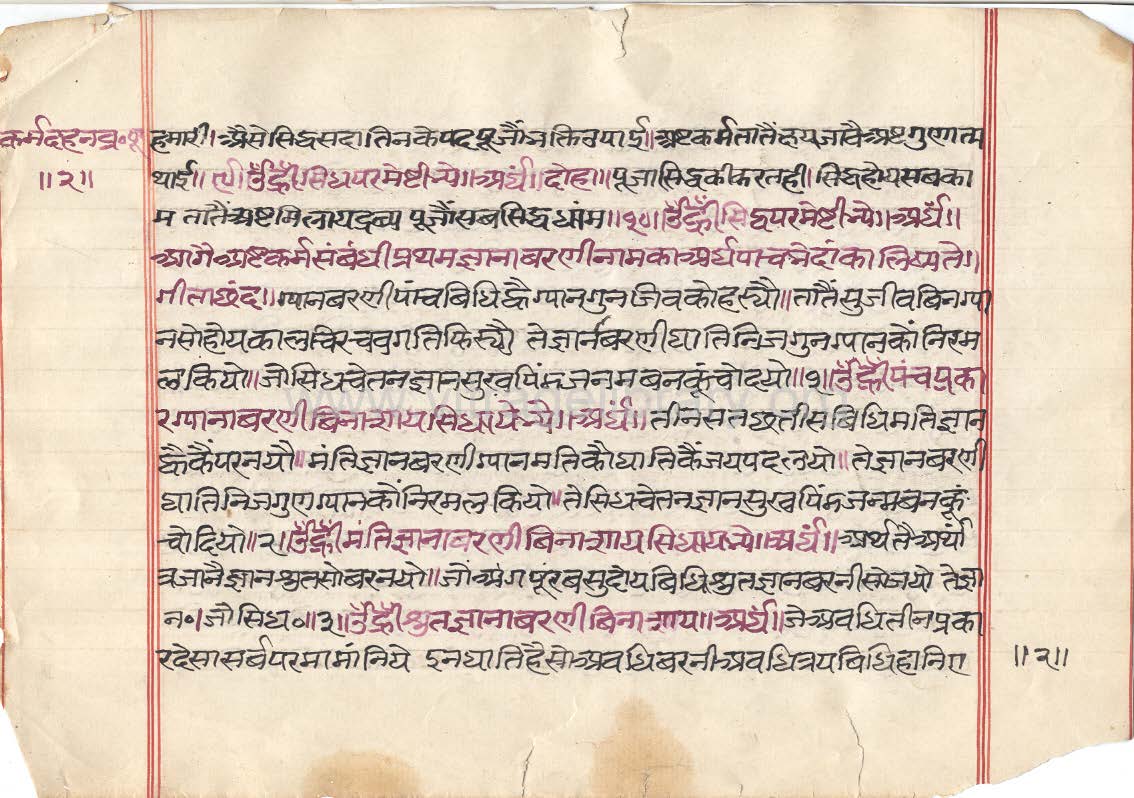 कर्मदहनव्र॰पू
॥२॥
हमारी। अैसे सिद्ध सदा तिनकै पद पूजौं भक्ति उपाई॥ अष्ट कर्म तातैं क्षय जावै अष्ट गुणात्म
थाई॥ ९॥ उँह्रीं सिधपरमेष्टीभ्यो॥ अर्घं॥ दोहा॥ पूजा सिद्धकी करतही। सिद्ध होय सब का
म तातैं अष्ट मिलाय द्रव्य पूजौं सब सिद्ध धांम॥ १०॥ उँह्रीं सिद्धपरमेष्टीभ्यो॥ अर्घं॥
आगै अष्टकर्मसंबंधी प्रथम ज्ञानाबरणी नामका अर्घ पांच भेदांका लिष्यते॥
गीताछंद॥ ग्यानबरणी पांच बिधि ह्वै ग्यान गुन जिवको हस्यौ॥ तातैं सु जीव बिन ग्या
न सोहोय काल चिर चवुगति फिस्यौ ते ज्ञार्नबरणी घाति निज गुन ग्यानकौं निरम
ल कियो॥ जौ सिध चेतन ज्ञान सुख पिंम जनम बनकूं चोदयो॥ १॥ उँह्रीं पंच प्रका
र ग्यानाबरणी बिनाशाय सिधायेभ्यो॥ अर्घं॥ तीन सत छतीस बिधि मति ज्ञान
ह्वैकैं परनयौ॥ मंति ज्ञानबरणी ग्यान मतिकौ घातिकैं जय पद लयो॥ ते ज्ञानबरणी
घाति निज गुण ग्यानकौं निरमल कियो॥ ते सिध चेतन ज्ञान सुख पिंम जन्म बनकुं
चोदियो॥ २॥ उँह्रीं मंति ज्ञानाबरणी बिनाशाय सिधायभ्यो॥ अर्घं॥ अर्थतै अर्थां
त्र जानै ज्ञान श्रुत सो बरनयो॥ जों अंग पूंरब सु दोय बिधि श्रुत ज्ञानबरनी सो जयो ते ज्ञा
न॰। जौ सिध॰॥ ३॥ उँह्रीं श्रुत ज्ञानाबरणी बिनाशाय॥ अर्घं॥ जे अवधि तीन प्रका
र देसा सर्व परमा मांनिये इन घाति है सो अवधि बरनी अवधि त्रय बिधि हानिए
॥२॥